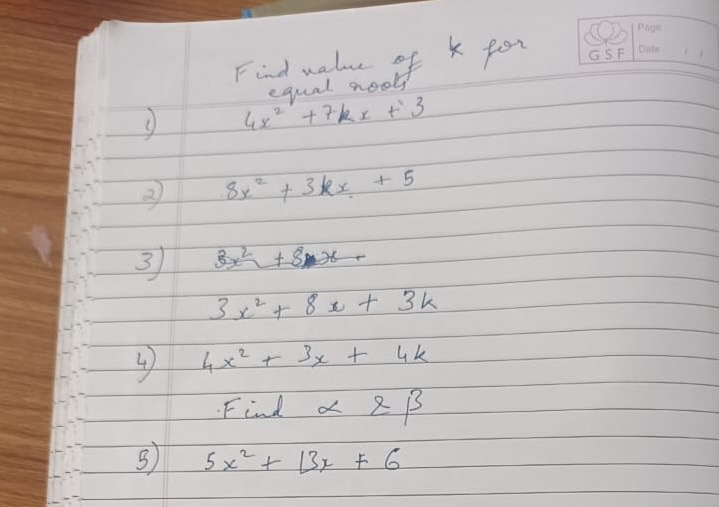 GSF
Page
Date / /
Find value of k for
equal roots
1) 4x² + 7kx + 3
2) 8x² + 3kx + 5
3)
3x² + 8x + 3k
4) 4x² + 3x + 4k
Find α & β
5) 5x² + 13x + 6